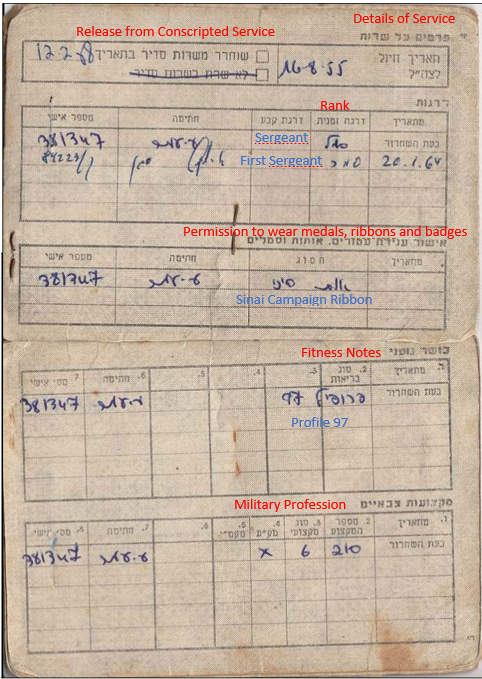 Details of Service
Release from Conscripted Service
פרטים על שרות
תאריך חיול לצה"ל
16-8-55
שוחרר משרות סדיר בתאריך 12-2-58
לא שרת בשרות סדיר
Rank
דרגות
מתאריך דרגה זמנית דרגת קבע חתימה מספר אישי
בעת השחרור סמל Sergeant 381347
20.1.64 סמר First Sergeant 84223/
Permission to wear medals, ribbons and badges
אישור ענידת עטורים, אותות וסמלים
מתאריך הסוג חתימה מספר אישי
אות סיני 381347
Sinai Campaign Ribbon
Fitness Notes
כושר גופני
ה. מתאריך 2. סוג בריאות 3. 4. 5. 6. חתימה 7. מס' אישי
בעת השחרור פרופיל 97 381347
Profile 97
Military Profession
מקצועות צבאיים
1. מתאריך 2. מספר המקצוע 3. סוג מקצועי 4. 5. 6. 7. חתימה 8. מס' אישי
בעת השחרור 210 6 x 381347